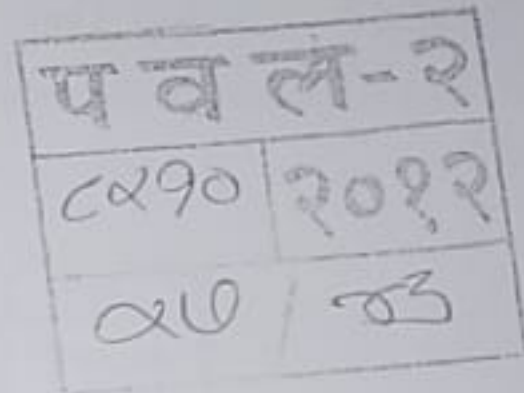 प व ल - २
८४१० २०१२
४७ /